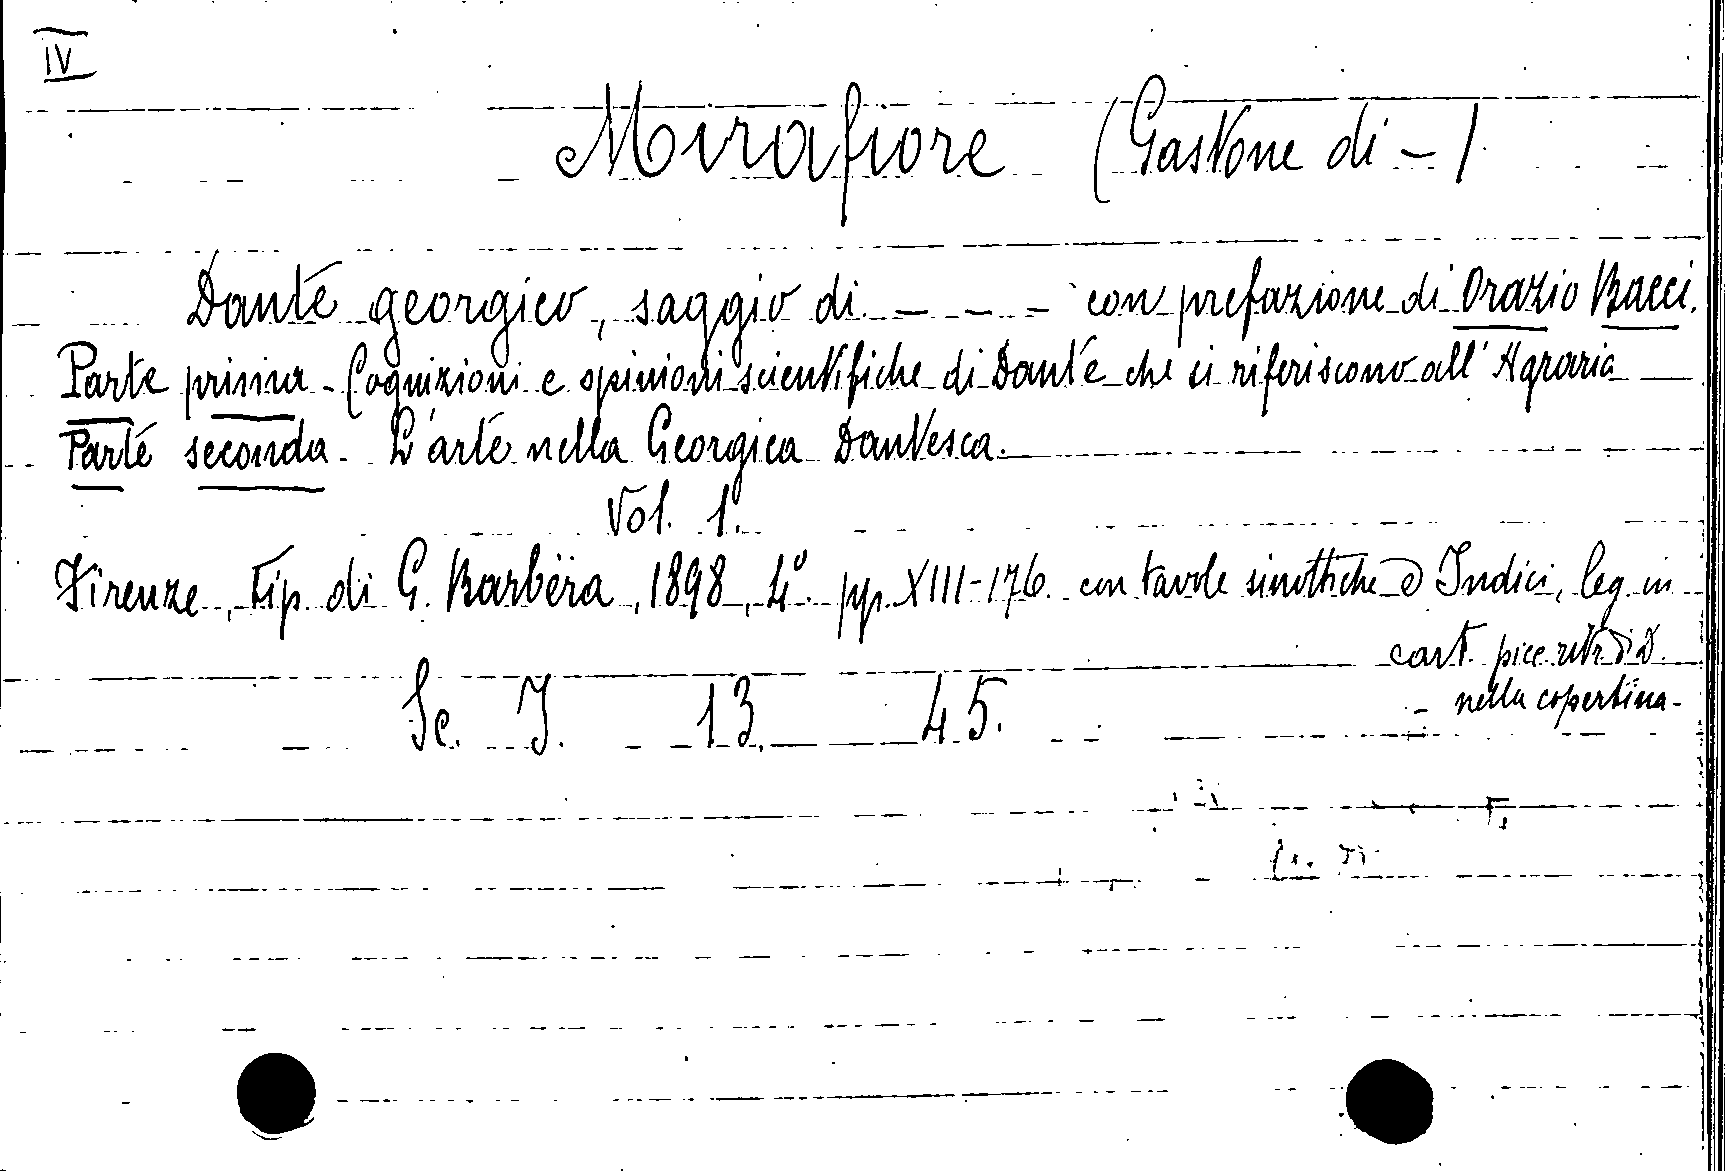 IV
Mirafiore (Gastone di - )
Dante georgico, saggio di - - - con prefazione di Orazio Bacci.
Parte prima - Cognizioni e opinioni scientifiche di Dante che si riferiscono all'Agraria
Parte seconda - L'arte nella Georgica Dantesca.
Vol. 1.
Firenze, tip. di G. Barbèra, 1898, 4° pp. XIII-176 con tavole sinottiche e Indici, leg. in
cart. picc. ritr. di D.
nella copertina -
Sc. I. 13. 45.